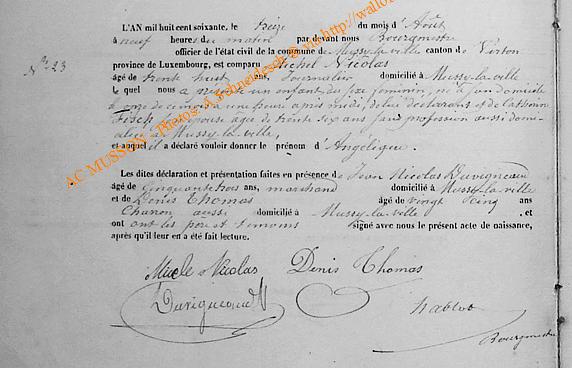 L'AN mil huit cent soixante, le treize du mois d'Août
à neuf heures du matin par devant nous Bourgmestre
officier de l'état civil de la commune de Mussy-la-ville canton de Virton
province de Luxembourg, est comparu Michel Nicolas
N° 23
âgé de trente huit ans, Journalier domicilié à Mussy-la-ville
le quel nous a présenté un enfant du sexe féminin, né à son domicile
le onze de ce mois à une heure après midi, de lui déclarant et de Catherine
Fisch, son épouse âgée de trente six ans sans profession aussi domi-
ciliée à Mussy-la-ville,
et auquel il a déclaré vouloir donner le prénom d'Angélique.
Les dites déclaration et présentation faites en présence de Jean Nicolas Duvigneaud
âgé de cinquante trois ans, marchand domicilié à Mussy-la-ville
et de Denis Thomas âgé de vingt cinq ans
aussi domicilié à Mussy-la-ville, et
ont les père et témoins signé avec nous le présent acte de naissance,
après qu'il leur en a été fait lecture.
Nicolas Denis Thomas
Duvigneaud
Bourgmestre
AC MUSSON - Photos: A. Schneidesch via http://wallon